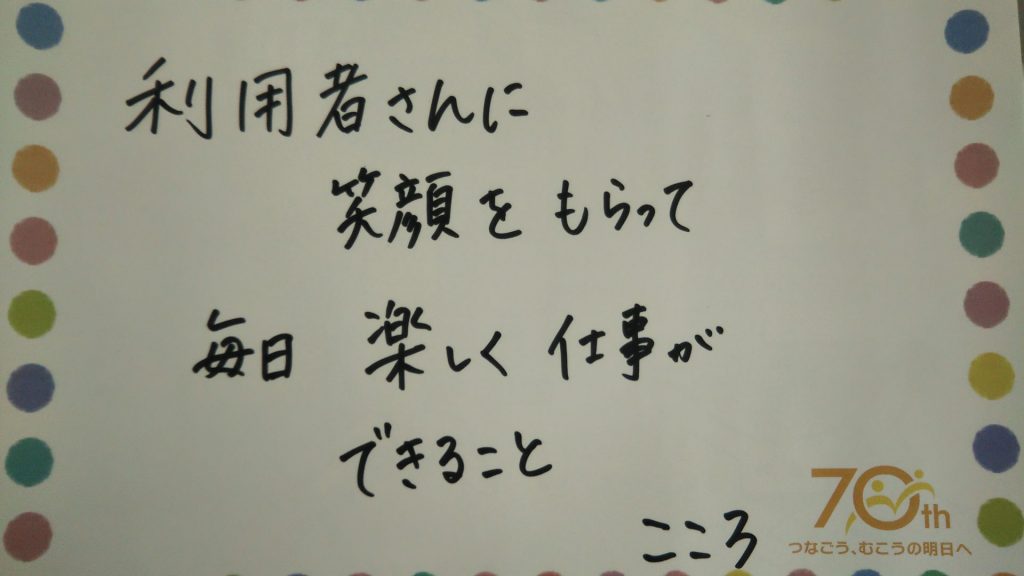 利用者さんに
笑顔をもらって
毎日 楽しく 仕事が
できること
こころ
70th
つなごう、むこうの明日へ